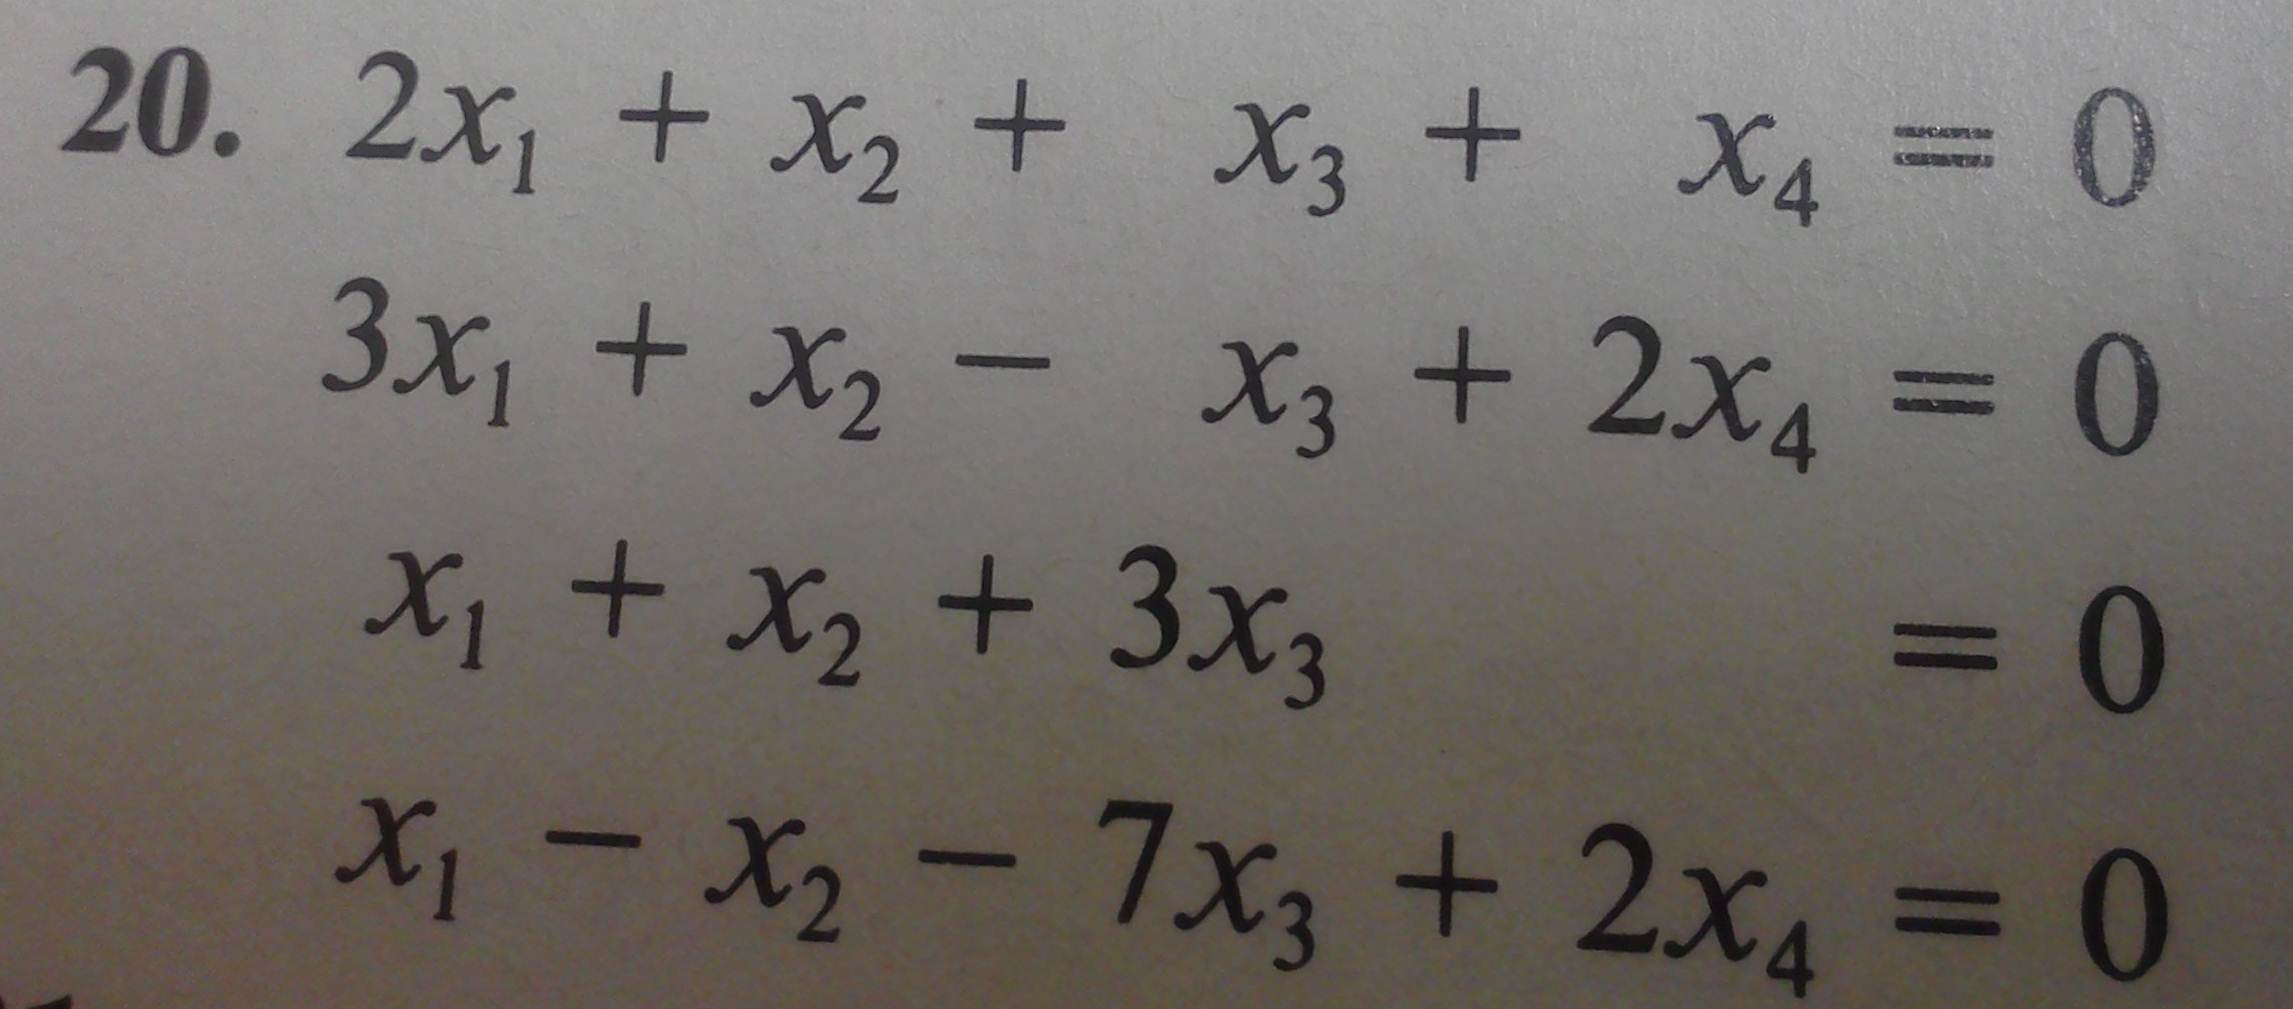 20. 2x₁ + x₂ + x₃ + x₄ = 0
3x₁ + x₂ − x₃ + 2x₄ = 0
x₁ + x₂ + 3x₃ = 0
x₁ − x₂ − 7x₃ + 2x₄ = 0